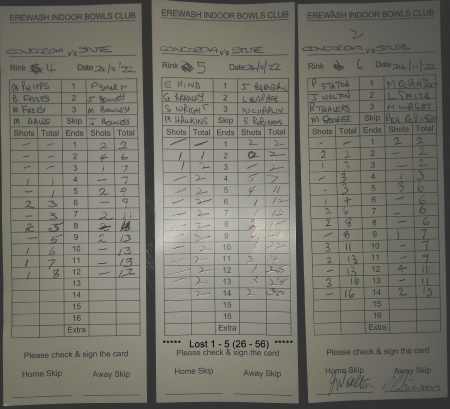 EREWASH INDOOR BOWLS CLUB
CONCORDIA v's STUTE
Rink 4 Date 24/11/22
1 P SMART
2
3 M BOWLEY
M DAVIS Skip J BOWLEY
Shots Total Ends Shots Total
- - 1 2 2
- - 2 4 6
- - 3 1 7
1 1 4 - 7
- 1 5 2 9
2 3 6 - 9
- 3 7 2 11
8
- 5 9 2 13
1 6 10 - 13
1 7 11 - 13
1 8 12 - 13
13
14
15
16
Extra
Please check & sign the card
Home Skip Away Skip
EREWASH INDOOR BOWLS CLUB
CONCORDIA v's STUTE
Rink 5 Date 24/11/22
E HIND 1
G BRADLEY 2
S WRIGHT 3 N CHAPLIN
M HAWKINS Skip
Shots Total Ends Shots Total
- - 1 2 2
1 1 2 - 2
1 2 3 - 2
- 2 4 5 7
- 2 5 4 11
- 2 6 1 12
- 2 7
- 2 8
- 2 9
- 2 10
- 2 11
- 2 12
- 2 13
- 2 14
15
16
Extra
***** Lost 1 - 5 (26 - 56) *****
Please check & sign the card
Home Skip Away Skip
EREWASH INDOOR BOWLS CLUB
2
CONCORDIA v's STUTE
Rink 6 Date 24/11/22
P STATON 1
J WALTON 2 L SMITH
R TRAVERS 3 M WRIGHT
M GEORGE Skip
Shots Total Ends Shots Total
- - 1 2 2
2 2 2 - 2
1 3 3 - 2
- 3 4 1 3
- 3 5 3 6
1 4 6 - 6
2 6 7 - 6
2 8 8 - 6
- 8 9 1 7
3 11 10 - 7
2 13 11 -
- 13 12 4 11
3 16 13 - 11
- 16 14 2 13
15
16
Extra
Please check & sign the card
Home Skip Away Skip